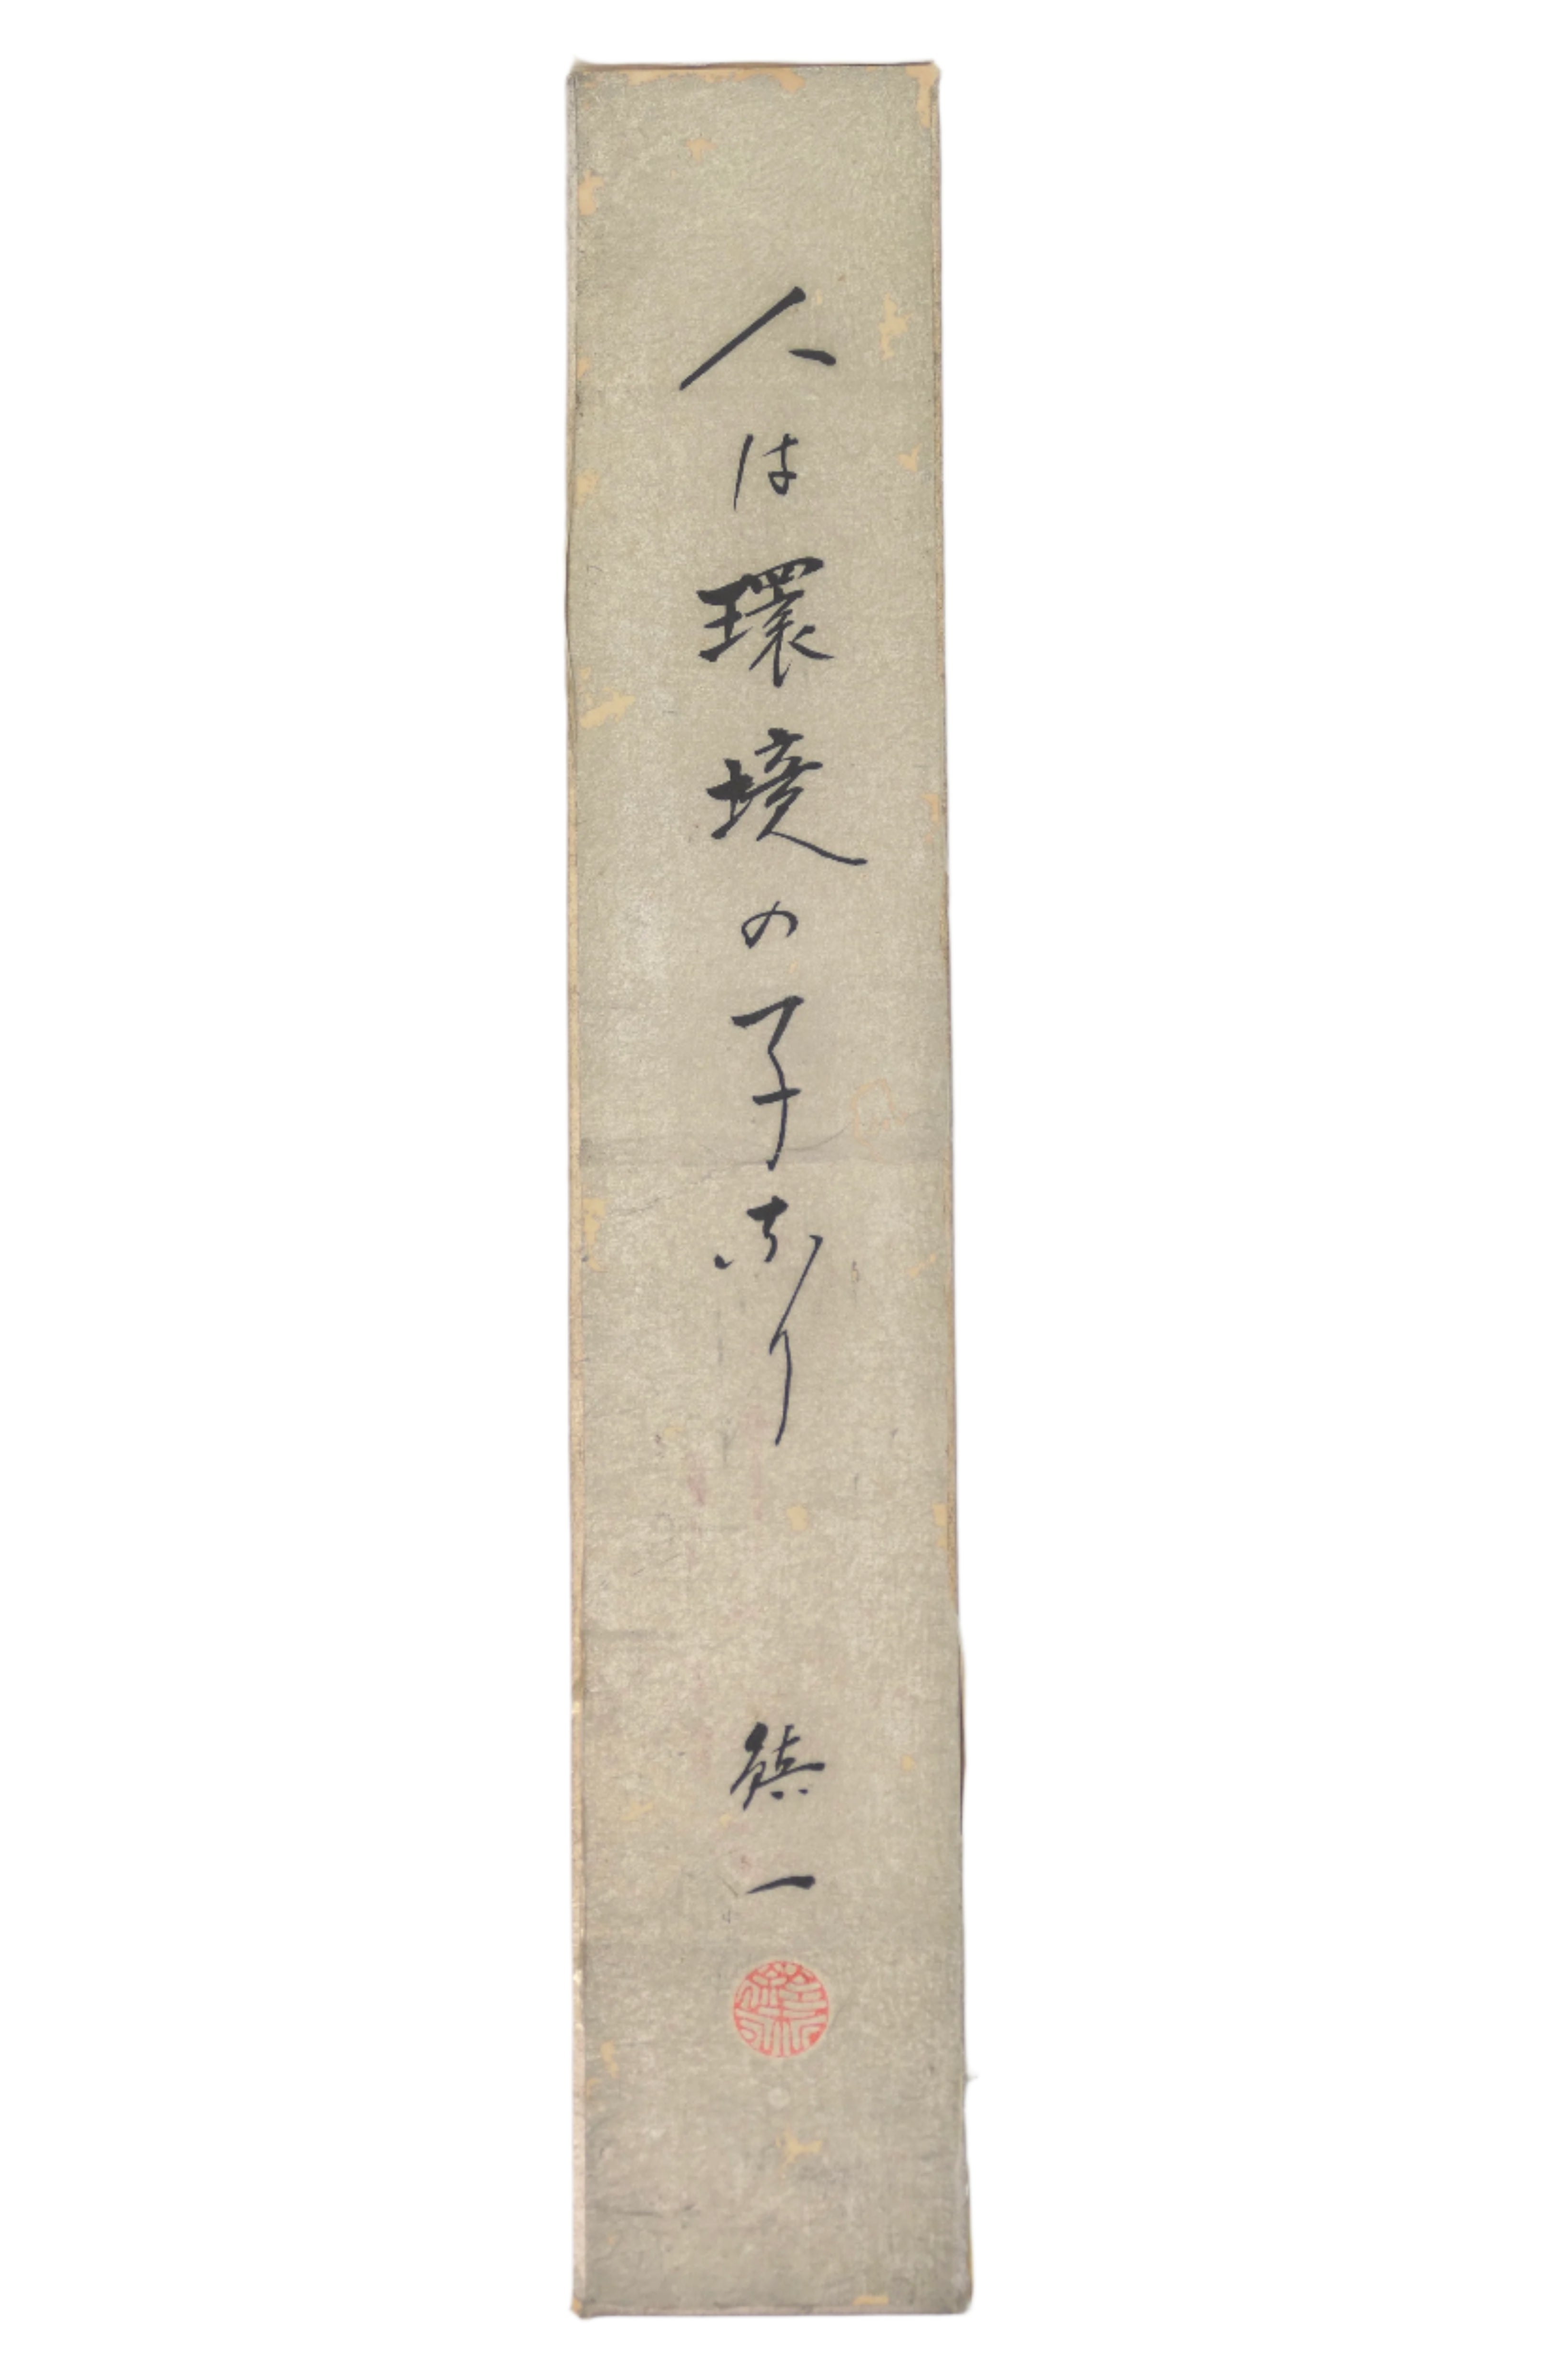 人は環境の子なり
一